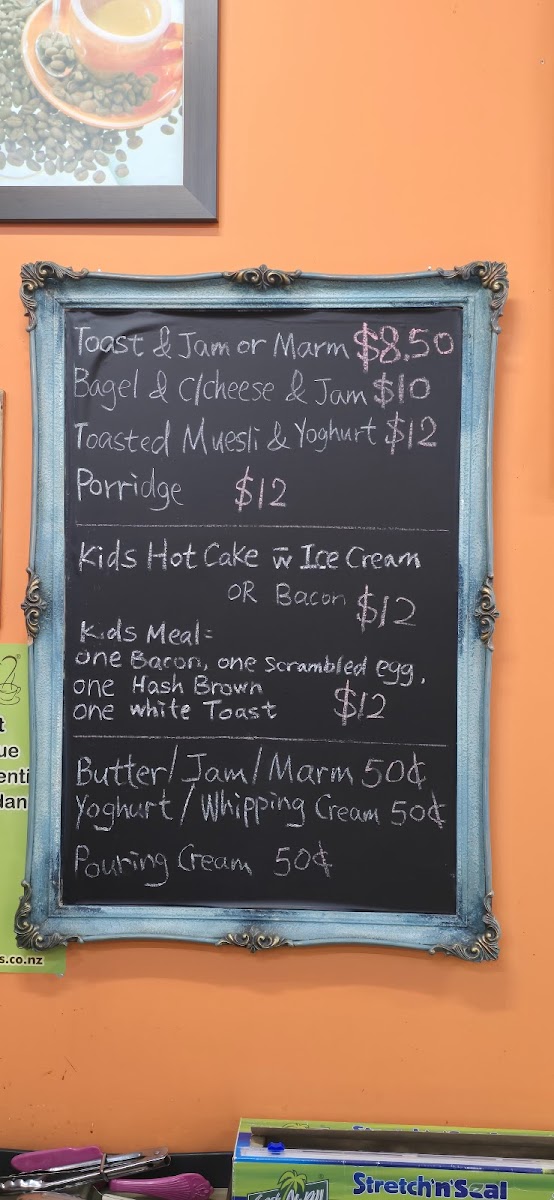 Toast & Jam or Marm $8.50
Bagel & c/cheese & Jam $10
Toasted Muesli & Yoghurt $12
Porridge $12
Kids Hot Cake w̅ Ice Cream
OR Bacon $12
Kids Meal:
one Bacon, one scrambled egg,
one Hash Brown
one white Toast $12
Butter/Jam/Marm 50¢
Yoghurt/Whipping Cream 50¢
Pouring Cream 50¢
t
ue
enti
dan
s.co.nz
Stretch'n'Seal
Stretch'n'Seal